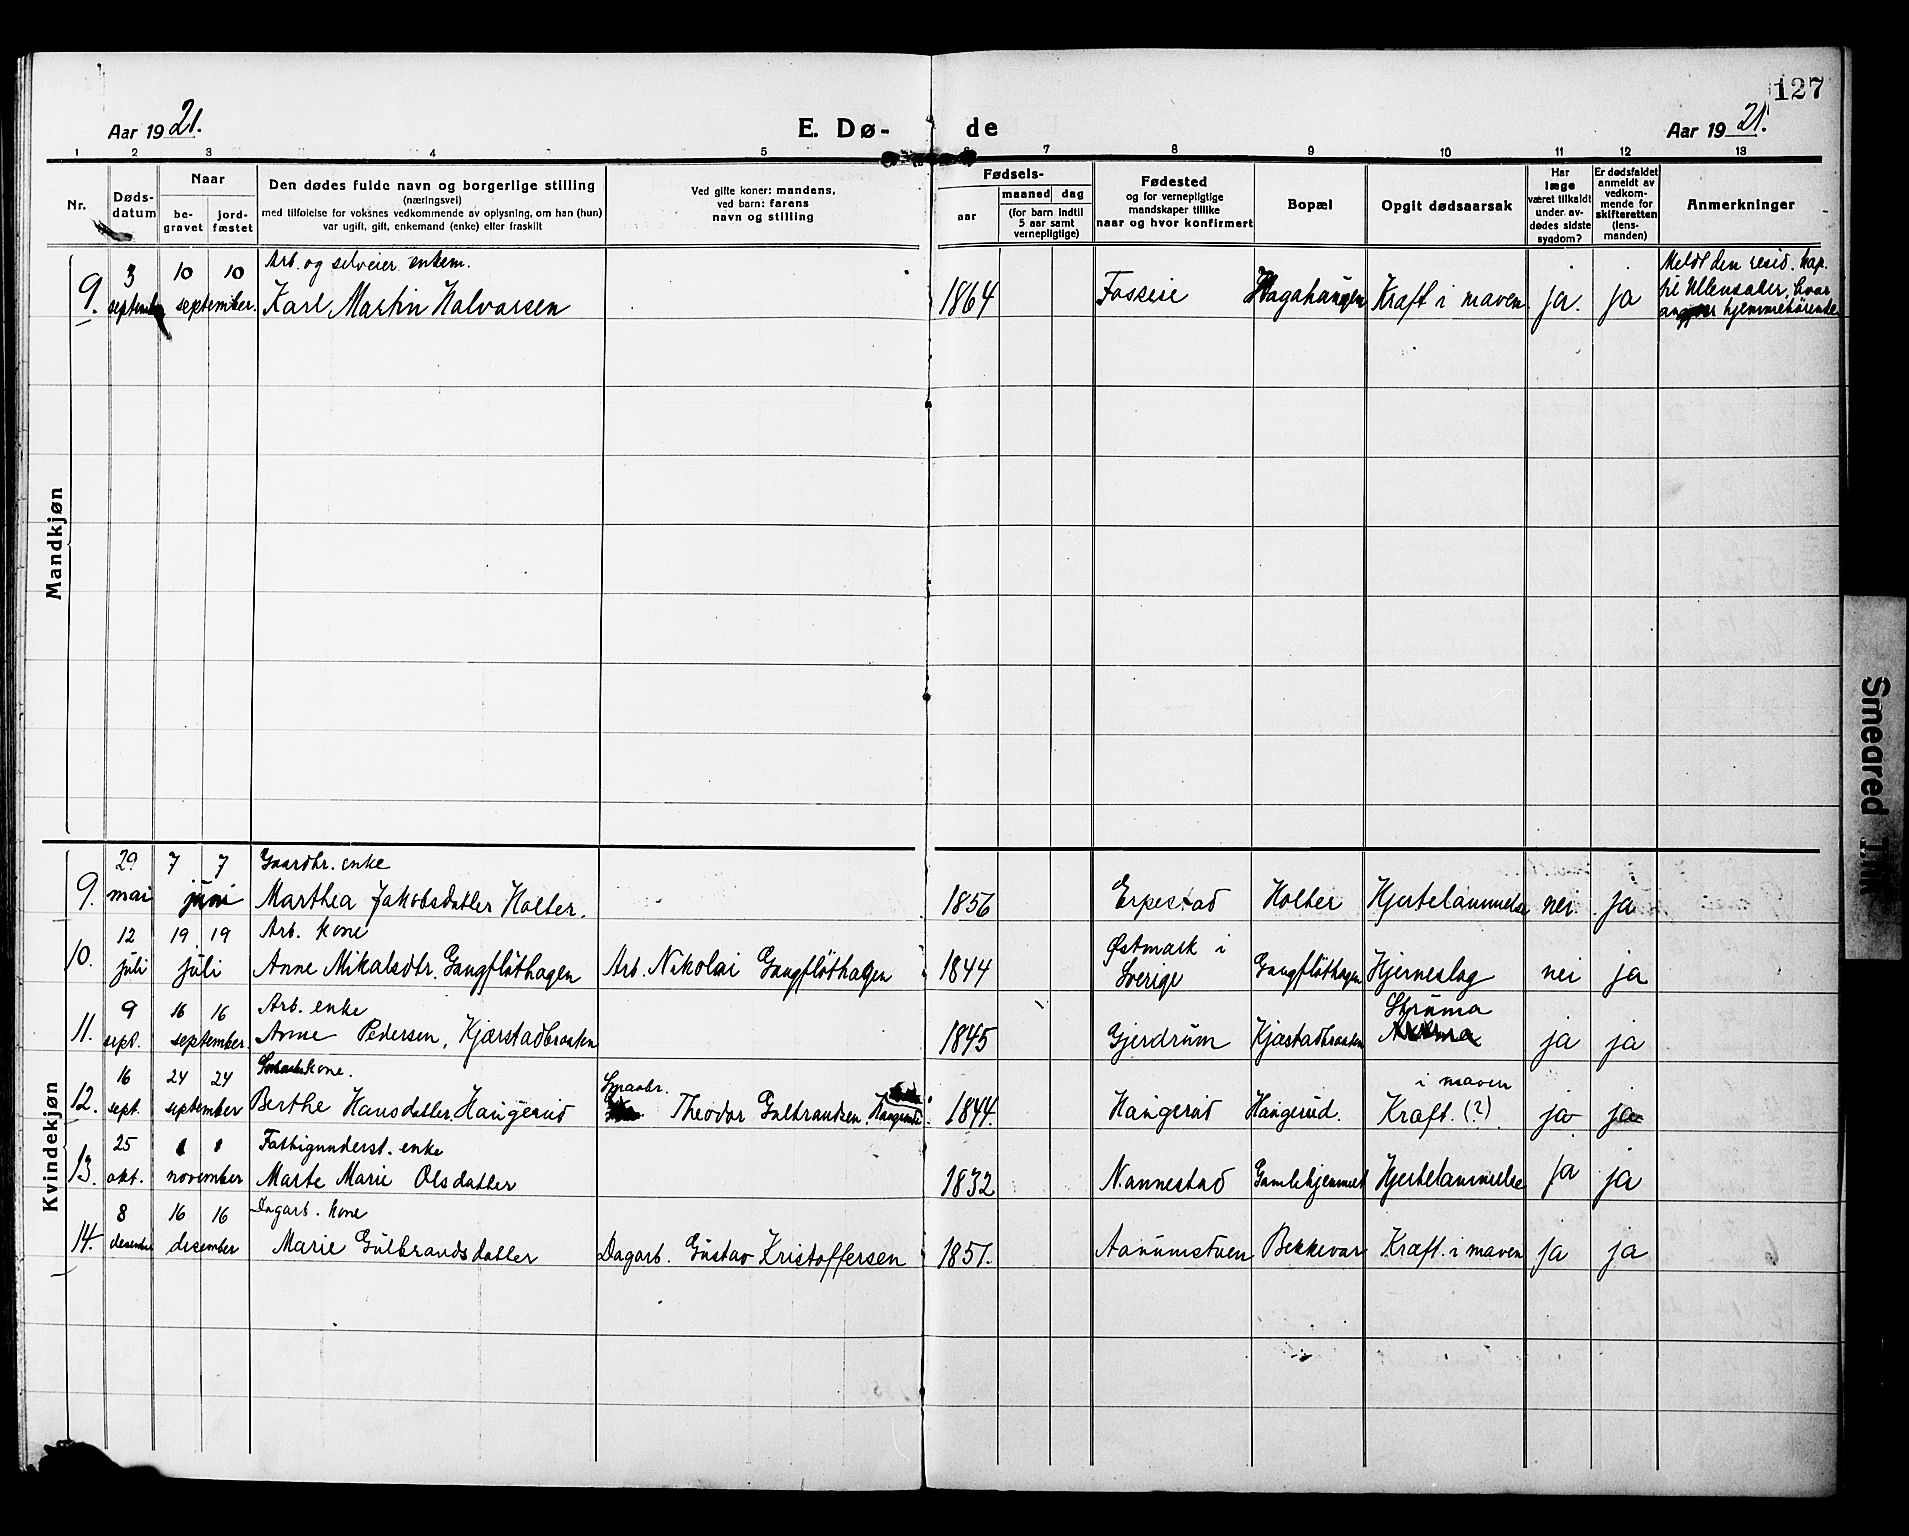 127
Aar 1921.
E. Dø-
de
Aar 1921.
1 2 3 4 5 6 7 8 9 10 11 12 13
Nr.
Døds-
datum
Naar
be-
gravet
jord-
fæstet
Den dødes fulde navn og borgerlige stilling
(næringsvei)
med tilføielse for voksnes vedkommende av oplysning, om han (hun)
var ugift, gift, enkemand (enke) eller fraskilt
Ved gifte koner: mandens,
ved barn: farens
navn og stilling
Fødsels-
aar
maaned dag
(for barn indtil
5 aar samt
vernepligtige)
Fødested
og for vernepligtige
mandskaper tillike
naar og hvor konfirmert
Bopæl
Opgit dødsaarsak
Har
læge
været tilkaldt
under av-
dødes sidste
sygdom?
Er dødsfaldet
anmeldt av
vedkom-
mende for
skifteretten
(lens-
manden)
Anmerkninger
Mandkjøn
3 10 10 Arb. og selveier enkem. Meldt den resid. kap.
til Ullensaker, hvor
9. september september. Karl Martin Halvorsen 1864 Fosseie Hagahaugen Kræft i maven ja. ja hjemmehørende
Kvindekjøn
29 7 7 Gaardbr. enke
9. mai juni Marthea Jakobsdatter Holter. 1856 Erpestad Holter Hjertelammelse nei ja
12 19 19 Arb. kone Østmark i
10. juli juli Anne Mikalsdtr. Gangfløthagen Arb. Nikolai Gangfløthagen 1844 Sverige Gangfløthagen Hjerneslag nei ja
9 16 16 Arb. enke Struma
11. sept. september. Anne Pedersen, Kjærstadbraaten 1845 Gjerdrum Kjæstadbraaten ja ja
16 24 24 kone. Smaabr. i maven
12. sept. september Berthe Hansdatter Haugerud Theodor Gulbrandsen, Haugerud. 1844. Haugerud Haugerud. Kræft. (?) ja ja
25 1 1 Fattigunderst. enke
13. okt. november Marte Marie Olsdatter 1832 Nannestad Gamlehjemmet Hjertelammelse ja ja
8 16 16 Dagarb. kone
14. desember desember Marie Gulbrandsdatter Dagarb. Gustav Kristoffersen 1851. Aarumstuen Bekkevar Kræft. i maven ja ja
Smeared Ink